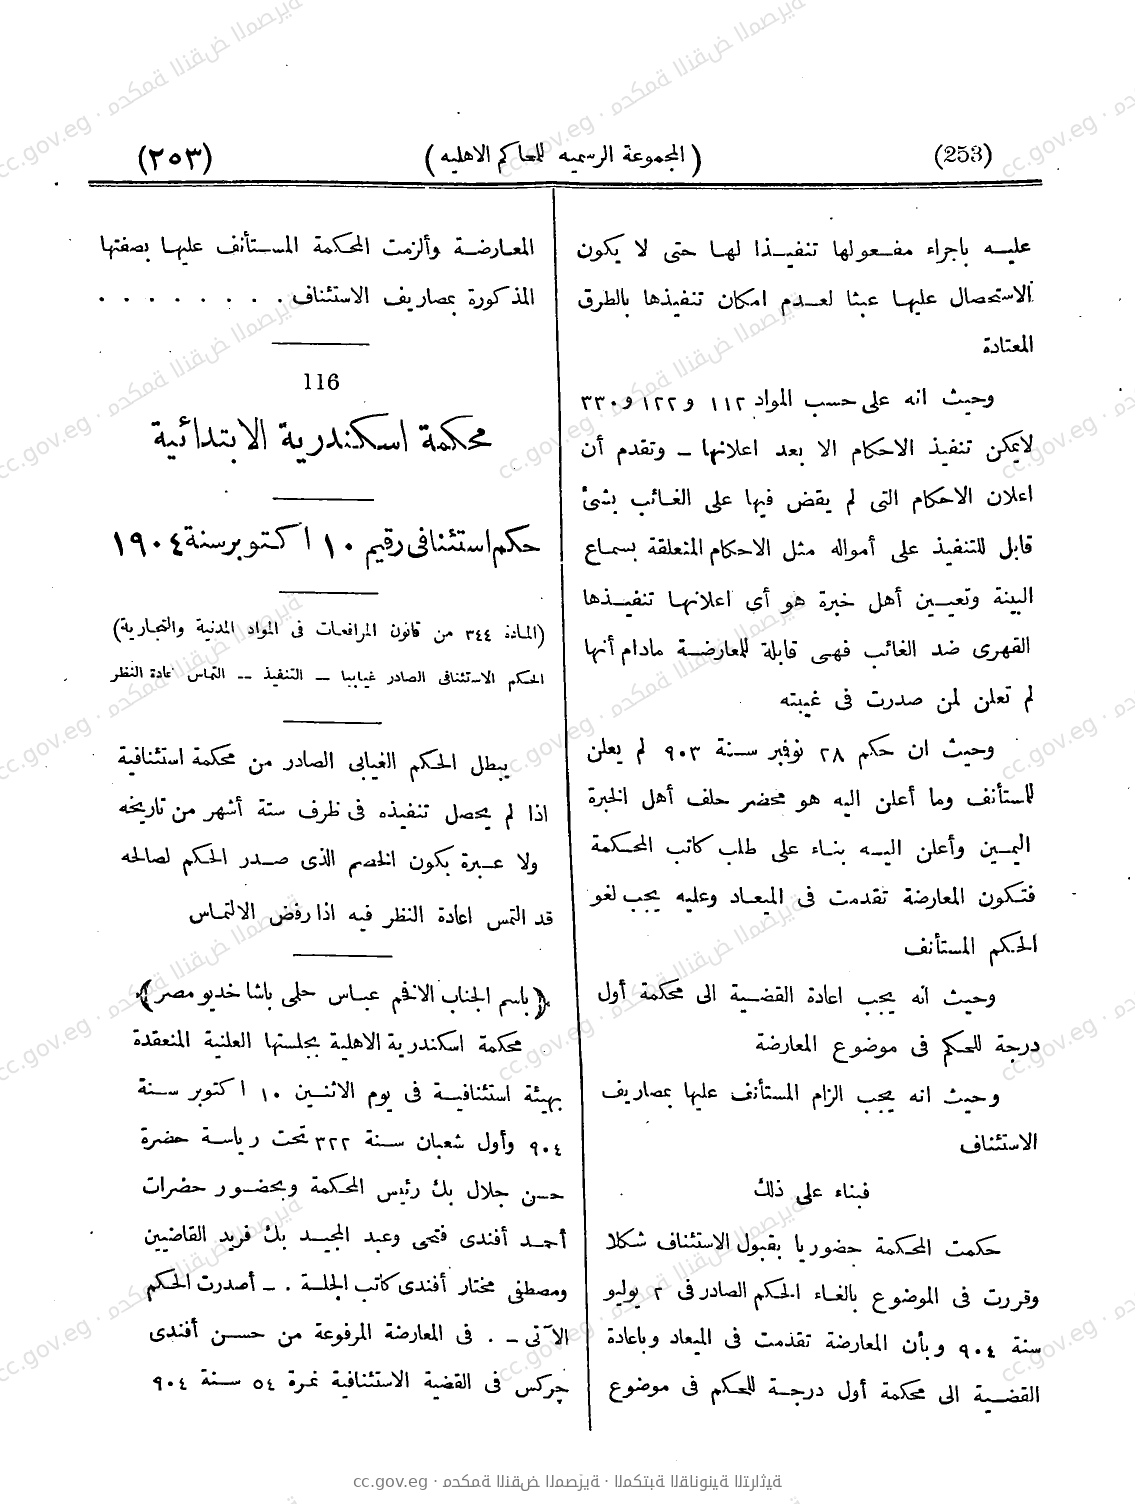 (253) (المجموعة الرسميه للمحاكم الاهليه) (٢٥٣)
عليه باجراء مفعولها تنفيذا لها حتى لا يكون
الاستحصال عليها عبثا لعدم امكان تنفيذها بالطرق
المعتادة
وحيث انه على حسب المواد ١١٢ و١٢٢ و٣٣٠
لا يمكن تنفيذ الاحكام الا بعد اعلانها ــ وتقدم أن
اعلان الاحكام التى لم يقض فيها على الغائب بشئ
قابل للتنفيذ على أمواله مثل الاحكام المتعلقة بسماع
البينة وتعيين أهل خبرة هو أى اعلانها تنفيذها
القهرى ضد الغائب فهى قابلة للمعارضة مادام أنها
لم تعلن لمن صدرت فى غيبته
وحيث ان حكم ٢٨ نوفبر سنة ٩٠٣ لم يعلن
للمستأنف وما أعلن اليه هو محضر حلف أهل الخبرة
اليمين وأعلن اليه بناء على طلب كاتب المحكمة
فتكون المعارضة تقدمت فى الميعاد وعليه يجب لغو
الحكم المستأنف
وحيث انه يجب اعادة القضية الى محكمة أول
درجة للحكم فى موضوع المعارضة
وحيث انه يجب الزام المستأنف عليها بمصاريف
الاستئناف
فبناء على ذلك
حكمت المحكمة حضوريا بقبول الاستئناف شكلا
وقررت فى الموضوع بالغاء الحكم الصادر فى ٢ يوليو
سنة ٩٠٤ وبأن المعارضة تقدمت فى الميعاد وباعادة
القضية الى محكمة أول درجة للحكم فى موضوع
المعارضة وألزمت المحكمة المستأنف عليها بصفتها
المذكورة بمصاريف الاستئناف . . . . . . . .
116
محكمة اسكندرية الابتدائية
حكم استئنافى رقيم ١٠ اكتوبر سنة ١٩٠٤
(المادة ٣٤٤ من قانون المرافعات فى المواد المدنية والتجارية)
الحكم الاستئنافى الصادر غيابيا ــ التنفيذ ــ التماس اعادة النظر
يبطل الحكم الغيابى الصادر من محكمة استئنافية
اذا لم يحصل تنفيذه فى ظرف ستة أشهر من تاريخه
ولا عبرة بكون الخصم الذى صدر الحكم لصالحه
قد التمس اعادة النظر فيه اذا رفض الالتماس
﴿باسم الجناب الافخم عباس حلمى باشا خديو مصر﴾
محكمة اسكندرية الاهلية بجلستها العلنية المنعقدة
بهيئة استئنافية فى يوم الاثنين ١٠ اكتوبر سنة
٩٠٤ وأول شعبان سنة ٣٢٢ تحت رياسة حضرة
حسن جلال بك رئيس المحكمة وبحضور حضرات
أحمد أفندى فتحى وعبد المجيد بك فريد القاضيين
ومصطفى مختار أفندى كاتب الجلسة . ــ أصدرت الحكم
الآتى ــ . فى المعارضة المرفوعة من حسن أفندى
جركس فى القضية الاستئنافية نمرة ٥٤ سنة ٩٠٤
cc.gov.eg · محكمة النقض المصرية · المكتبة القانونية التراثية